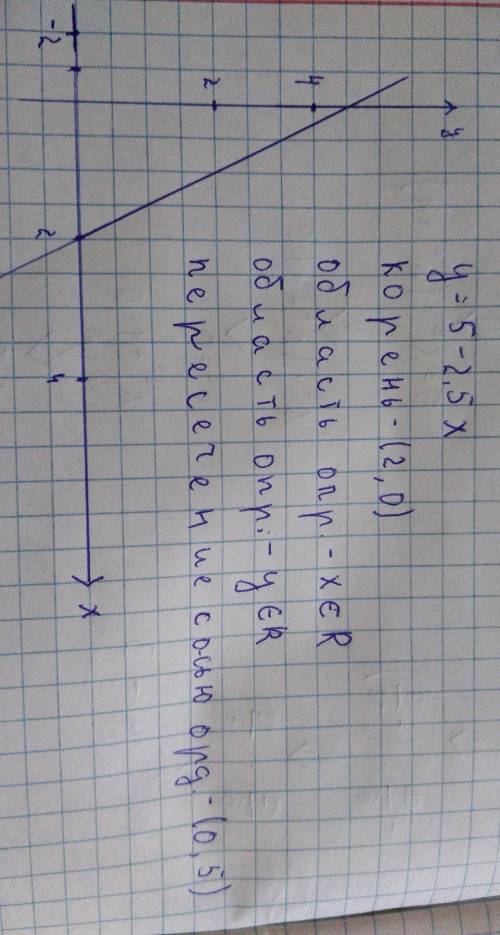 y = 5 - 2,5 x
корень - (2, 0)
область опр. - x ∈ R
область опр: - y ∈ R
пересечение с осью орд. - (0, 5)
y
4
2
-2
2
4
x